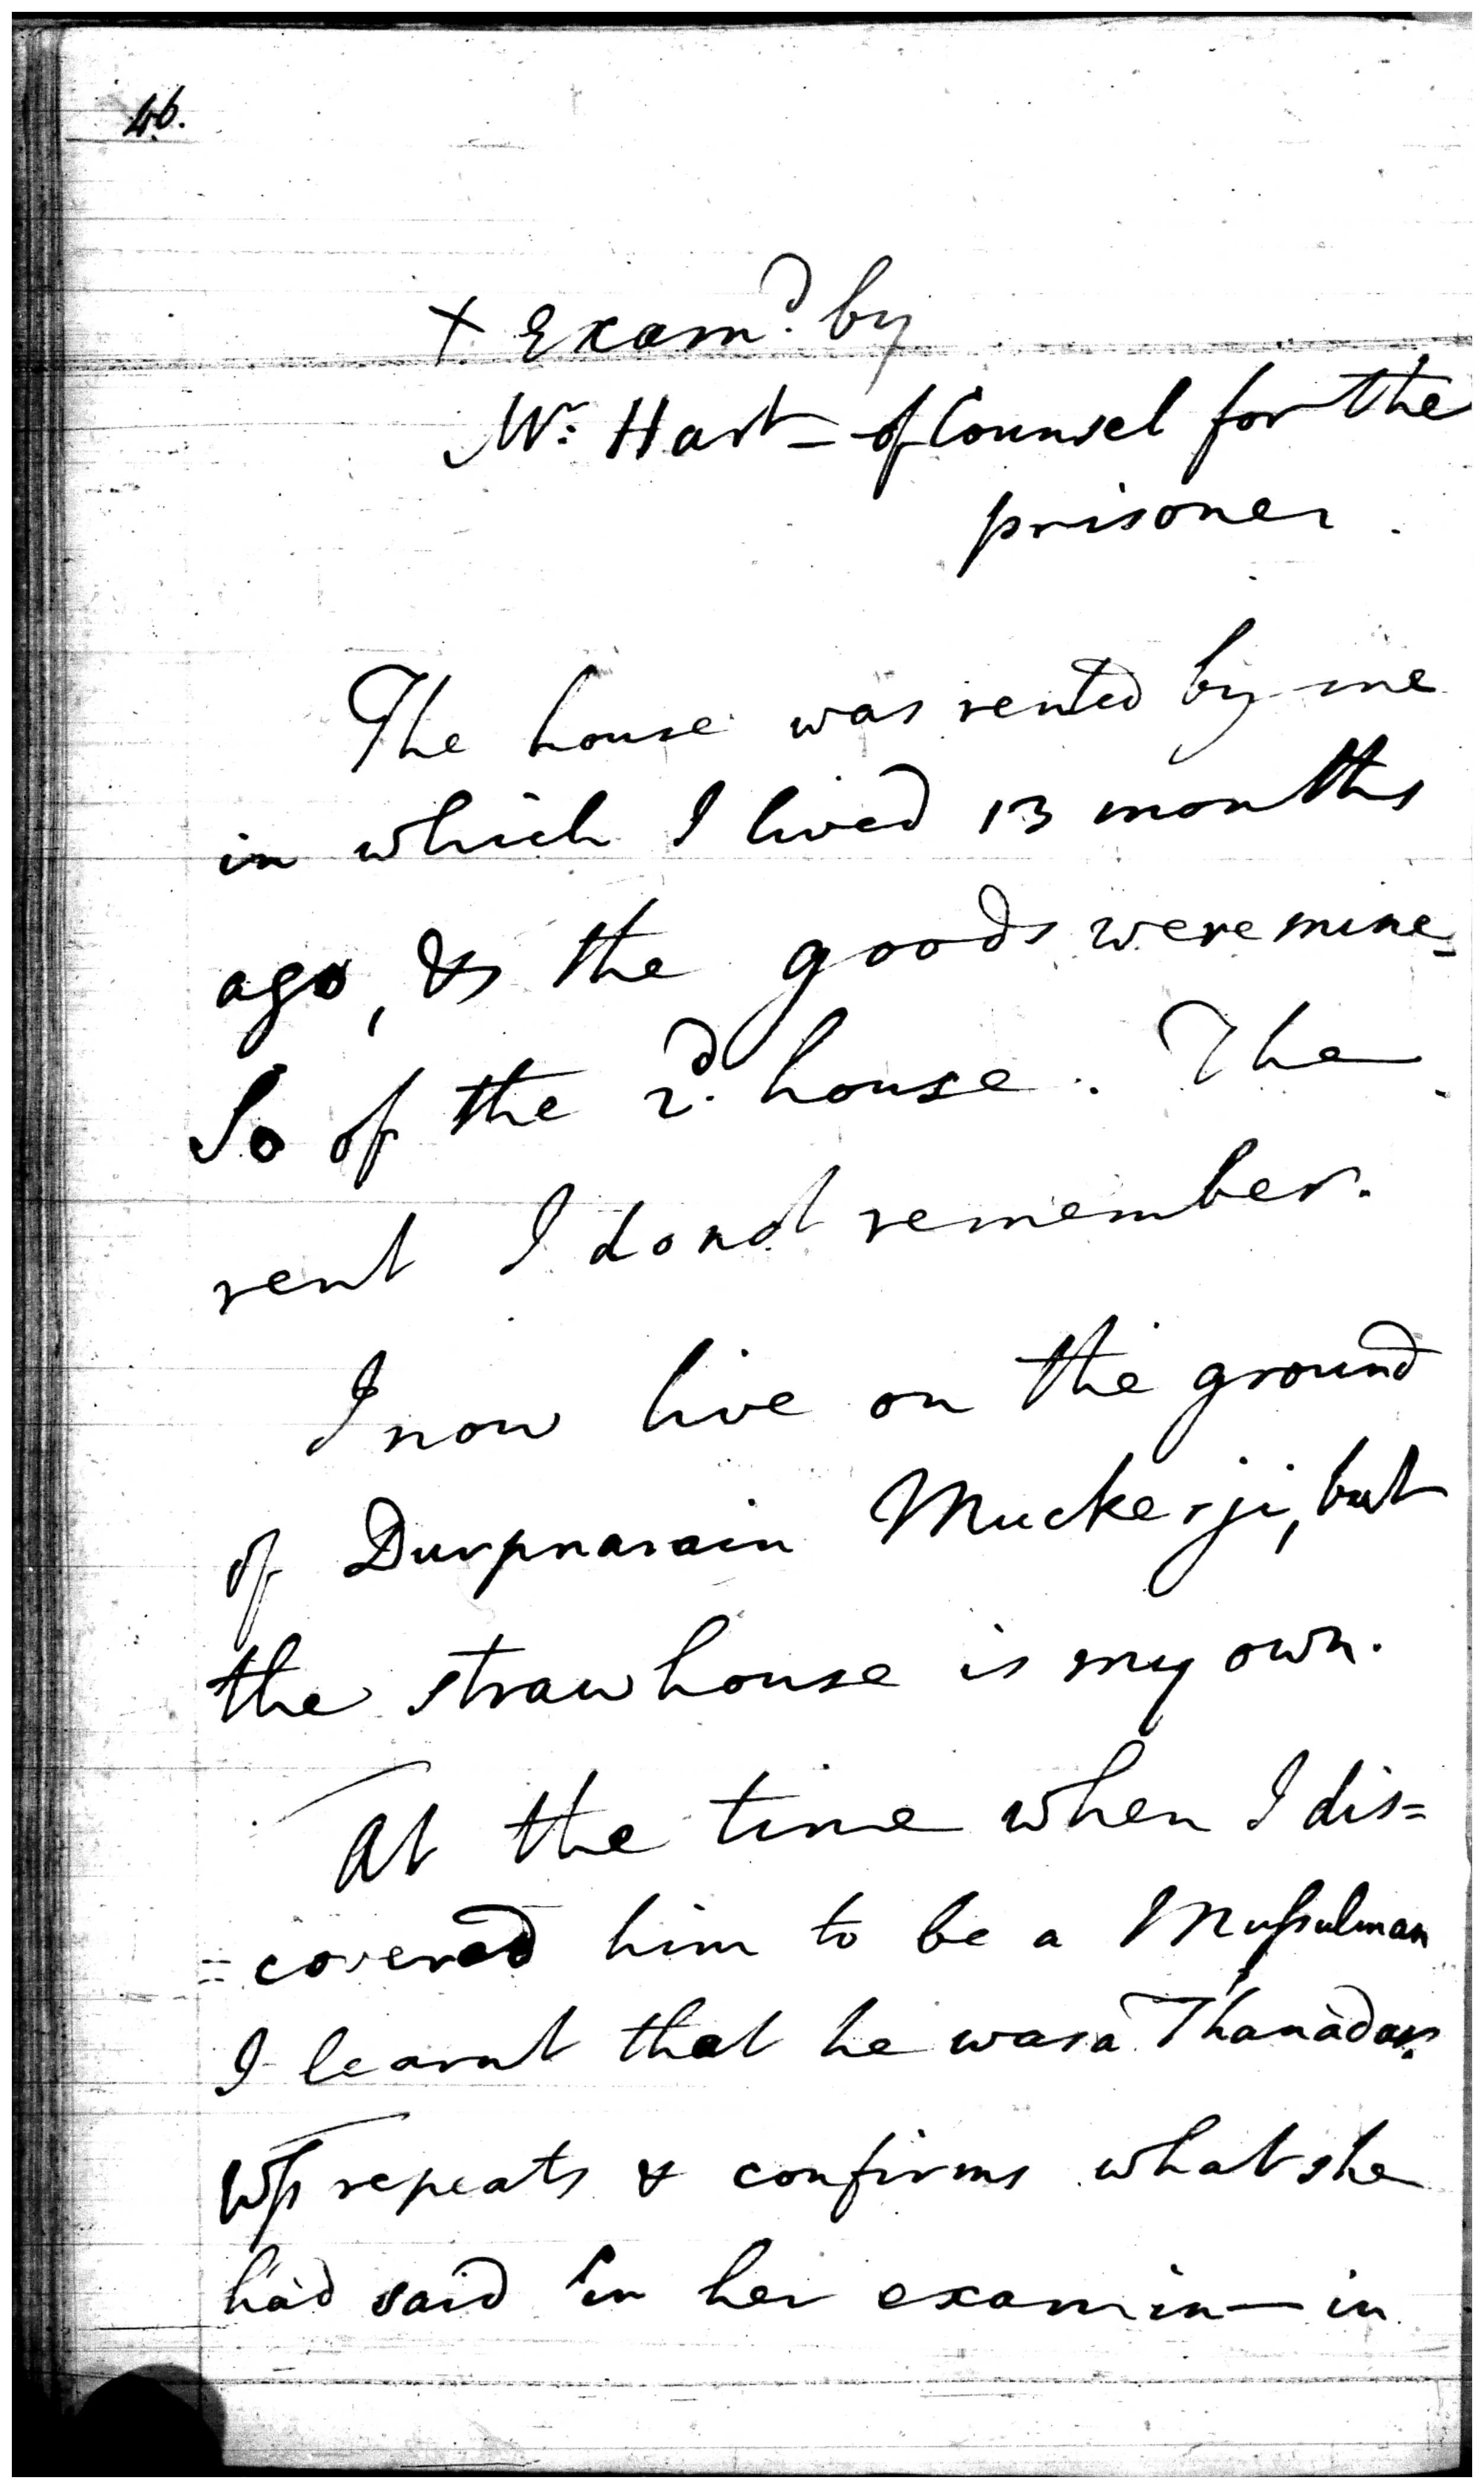 46.
X Exam.d by
Mr. Hart - of Counsel for the
prisoner.
The house was rented by me
in which I lived 13 months
ago, & the goods were mine.
So of the 2.d house. The
rent I do not remember.
I now live on the ground
of Durpnarain Muckerji, but
the straw house is my own.
At the time when I dis=
=covered him to be a Mussulman
I learnt that he was a Thanadar.
Ws repeats & confirms what she
had said in her examin— in